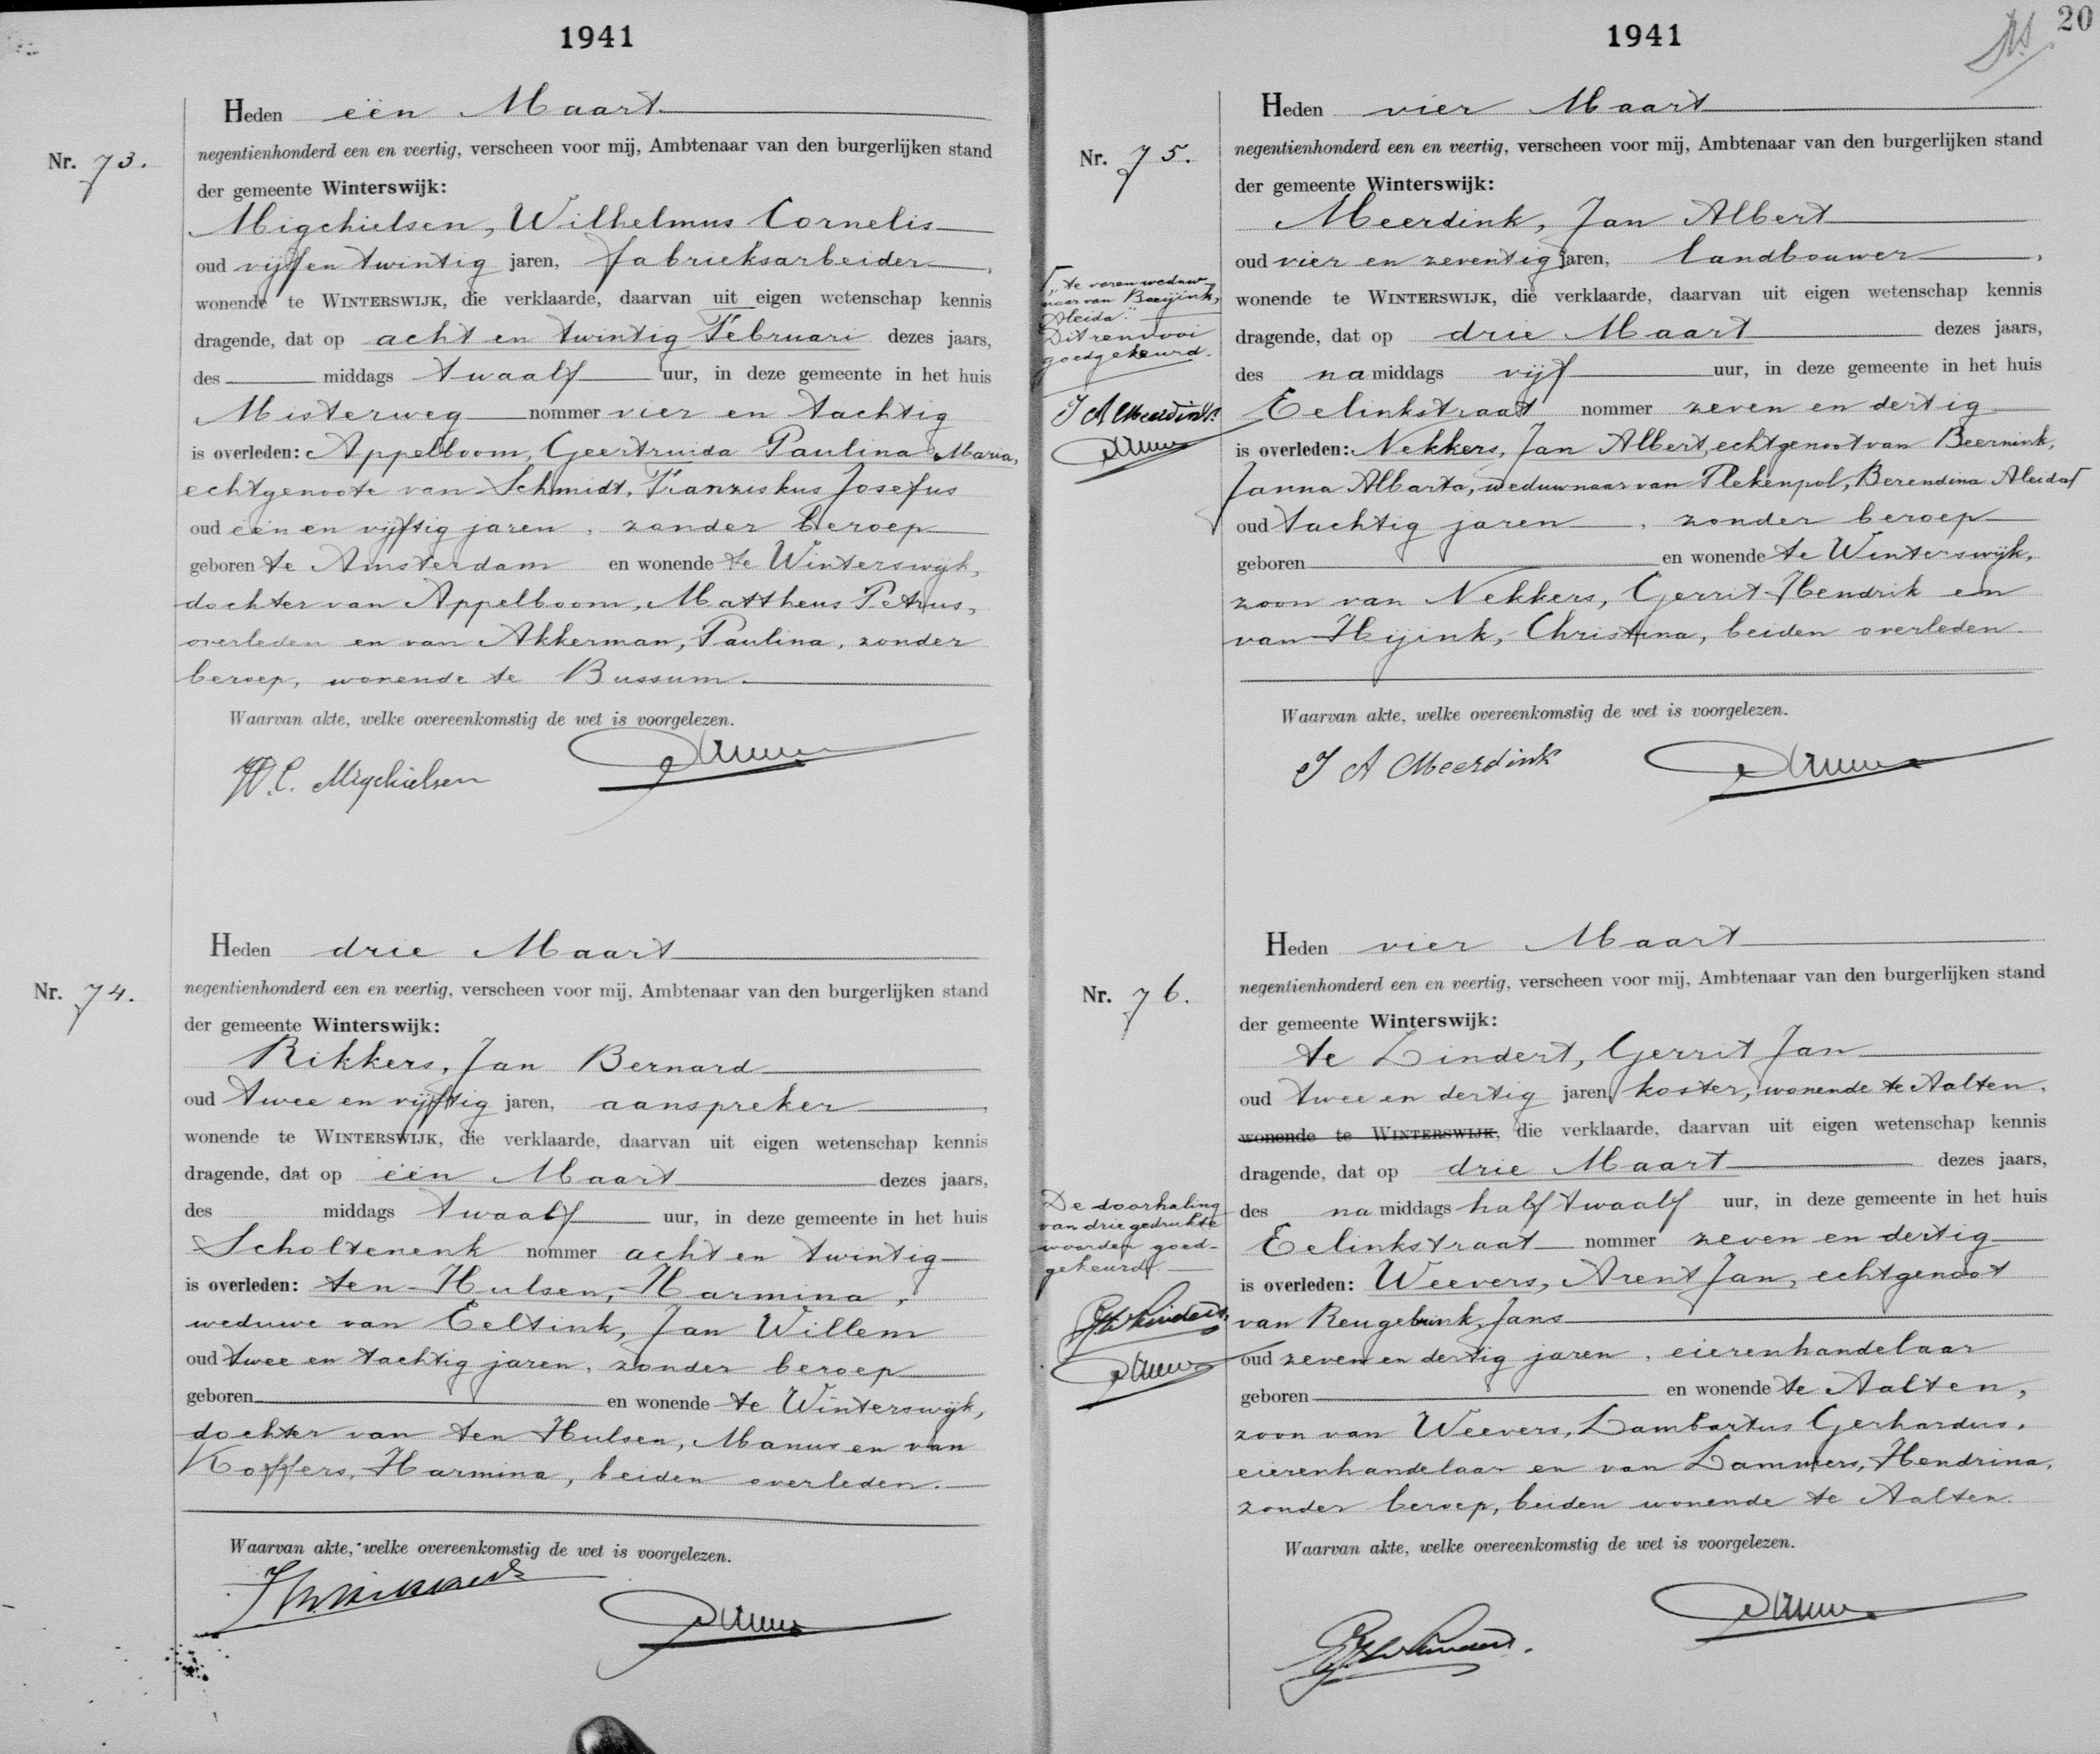 1941
Heden eën Maart
Nr. 73.
negentienhonderd een en veertig, verscheen voor mij, Ambtenaar van den burgerlijken stand
der gemeente Winterswijk:
Migchielsen, Wilhelmus Cornelis
oud vijf en twintig jaren, fabrieksarbeider,
wonende te WINTERSWIJK, die verklaarde, daarvan uit eigen wetenschap kennis
dragende, dat op acht en twintig Februari dezes jaars,
des middags twaalf uur, in deze gemeente in het huis
Misterweg nommer vier en tachtig
is overleden: Appelboom, Geertruida Paulina Maria,
echtgenoote van Schmidt, Franziskus Josefus
oud eën en vijftig jaren, zonder beroep
geboren te Amsterdam en wonende te Winterswijk,
dochter van Appelboom, Mattheus Petrus,
overleden en van Akkerman, Paulina, zonder
beroep, wonende te Bussum.
Waarvan akte, welke overeenkomstig de wet is voorgelezen.
W.C. Migchielsen
Heden drie Maart
Nr. 74.
negentienhonderd een en veertig, verscheen voor mij, Ambtenaar van den burgerlijken stand
der gemeente Winterswijk:
Rikkers, Jan Bernard
oud twee en vijftig jaren, aanspreker,
wonende te WINTERSWIJK, die verklaarde, daarvan uit eigen wetenschap kennis
dragende, dat op eën Maart dezes jaars,
des middags twaalf uur, in deze gemeente in het huis
Scholtenenk nommer acht en twintig
is overleden: ten Hulsen, Harmina,
weduwe van Eeltink, Jan Willem
oud twee en tachtig jaren, zonder beroep
geboren en wonende te Winterswijk,
dochter van ten Hulsen, Manus en van
Koffers, Harmina, beiden overleden.
Waarvan akte, welke overeenkomstig de wet is voorgelezen.
1941
20
Heden vier Maart
Nr. 75.
negentienhonderd een en veertig, verscheen voor mij, Ambtenaar van den burgerlijken stand
der gemeente Winterswijk:
Meerdink, Jan Albert
oud vier en zeventig jaren, landbouwer,
wonende te WINTERSWIJK, die verklaarde, daarvan uit eigen wetenschap kennis
dragende, dat op drie Maart dezes jaars,
des namiddags vijf uur, in deze gemeente in het huis
Eelinkstraat nommer zeven en dertig
is overleden: Nekkers, Jan Albert, echtgenoot van Beernink,
Janna Alberta, weduwnaar van Plekenpol, Berendina Aleida
oud tachtig jaren, zonder beroep
geboren en wonende te Winterswijk,
zoon van Nekkers, Gerrit Hendrik en
van Hijink, Christina, beiden overleden.
Waarvan akte, welke overeenkomstig de wet is voorgelezen.
J A Meerdink
"te voren weduw-
naar van Boeijink,
Aleida."
Dit renvooi
goedgekeurd.
J A Meerdink
Heden vier Maart
Nr. 76.
negentienhonderd een en veertig, verscheen voor mij, Ambtenaar van den burgerlijken stand
der gemeente Winterswijk:
te Lindert, Gerrit Jan
oud twee en dertig jaren, koster, wonende te Aalten,
wonende te WINTERSWIJK, die verklaarde, daarvan uit eigen wetenschap kennis
dragende, dat op drie Maart dezes jaars,
des namiddags half twaalf uur, in deze gemeente in het huis
Eelinkstraat nommer zeven en dertig
is overleden: Weevers, Arent Jan, echtgenoot
van Reugebrink, Jans
oud zeven en dertig jaren, eierenhandelaar
geboren en wonende te Aalten,
zoon van Weevers, Lambartus Gerhardus,
eierenhandelaar en van Lammers, Hendrina,
zonder beroep, beiden wonende te Aalten.
Waarvan akte, welke overeenkomstig de wet is voorgelezen.
De doorhaling
van drie gedrukte
woorden goed-
gekeurd.